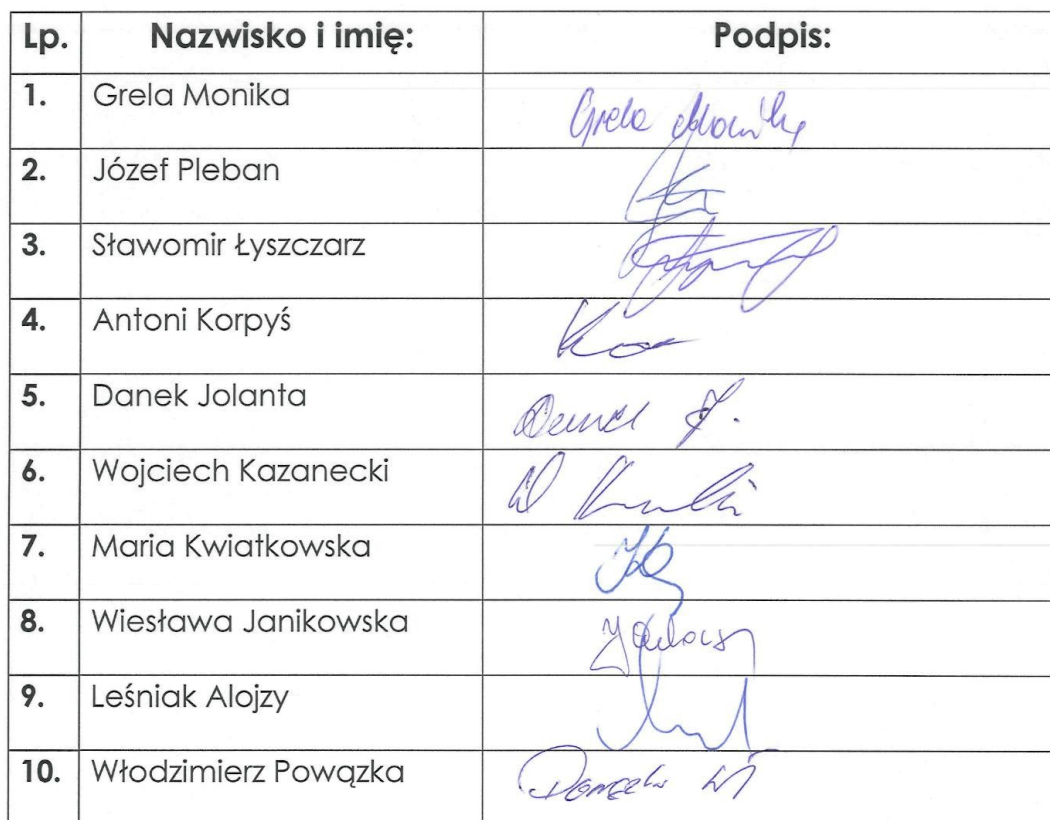 Lp. Nazwisko i imię: Podpis:
1. Grela Monika Grela Monika
2. Józef Pleban
3. Sławomir Łyszczarz
4. Antoni Korpyś
5. Danek Jolanta Danek J.
6. Wojciech Kazanecki W
7. Maria Kwiatkowska
8. Wiesława Janikowska
9. Leśniak Alojzy
10. Włodzimierz Powązka Powązka Wł